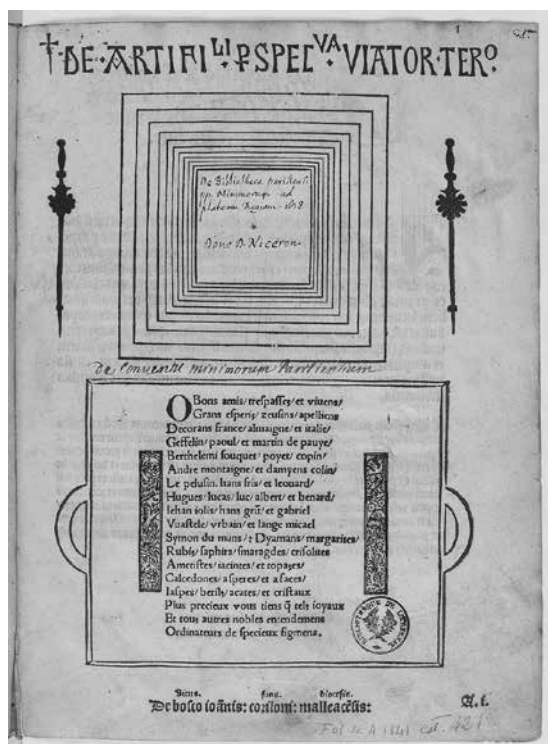 1
†DE·ARTIFI^LI·PSPEC^VA·VIATOR·TER°.
De Bibliotheca parisiensi
Minimorum ad
plateam Regiam. 1638
Dono D. Niceron.
De conventu minimorum Parisiensium
O Bons amis/ trespasses/ et vivens/
Grans esperiz/ zeusins/ apelliens
Decorans france/ almaigne/ et italie/
Geffelin/ paoul/ et martin de pauye/
Berthelemi fouquet/ poyet/ copin/
Andre montaigne/ et damyens colin/
Le pelusin. hans fris/ et leouard/
Hugues/ lucas/ luc/ albert/ et benard/
Iehan iolis/ hans grū/ et gabriel
Vuastele/ vrbain/ et lange micael
Symon du mans/ : Dyamans/ margarites/
Rubis/ saphirs/ smaragdes/ crisolites
Ametistes/ iacintes/ et topazes/
Calcedones/ asperes/ et a faces/
Iaspes/ berilz/ acates/ et cristaux
Plus precieux vous tiens q̄ telz ioyaux
Et tous autres nobles entendemens
Ordinateurs de specieux figmens.
BIBLIOTHEQUE DE
diocesis.
De bosco ioānis: coriloni: malleacēsis:
A.i.